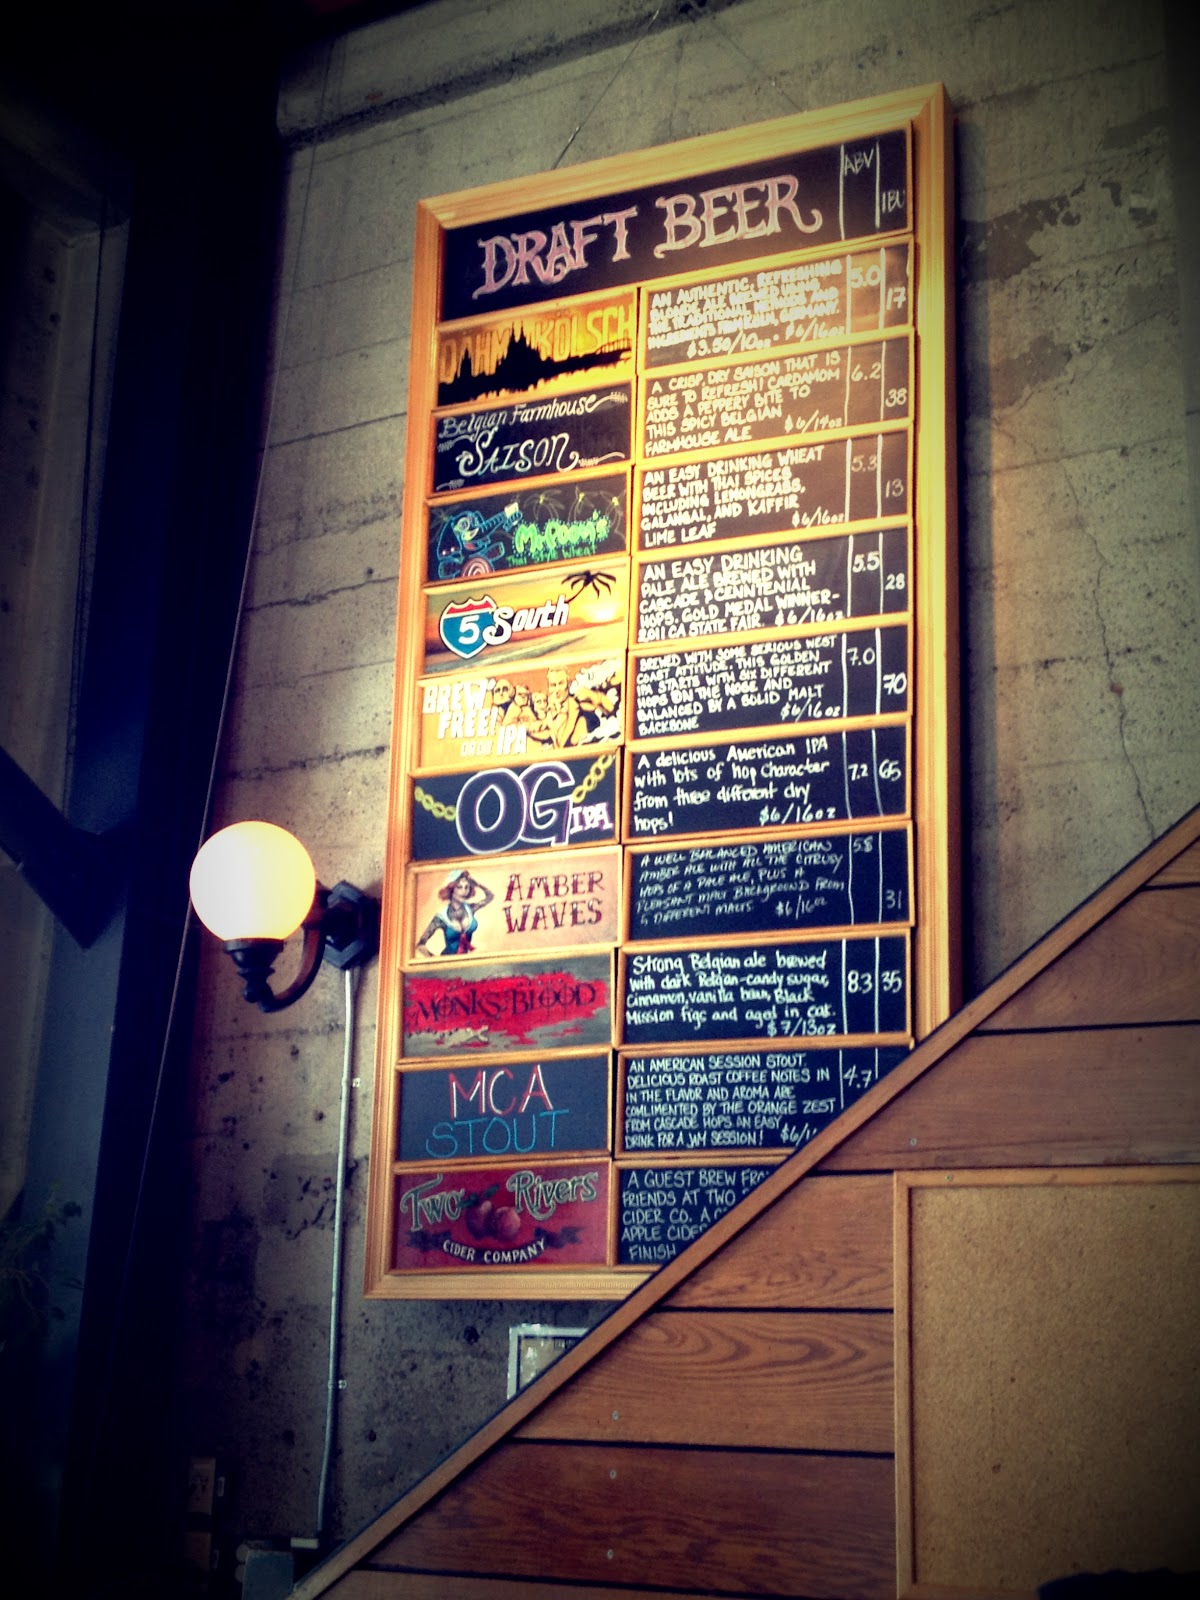 DRAFT BEER
ABV
IBU
KÖLSCH
AN AUTHENTIC, REFRESHING
BLONDE ALE BREWED USING
THE TRADITIONAL METHODS AND
INGREDIENTS FROM KOLN, GERMANY.
$3.50/10oz - $6/16oz
5.0
17
Belgian Farmhouse
SAISON
A CRISP, DRY SAISON THAT IS
SURE TO REFRESH! CARDAMOM
ADDS A PEPPERY BITE TO
THIS SPICY BELGIAN
FARMHOUSE ALE $6/14oz
6.2
38
Thai Style Wheat
AN EASY DRINKING WHEAT
BEER WITH THAI SPICES
INCLUDING LEMONGRASS,
GALANGAL, AND KAFFIR
LIME LEAF $6/16oz
5.3
13
5 South
AN EASY DRINKING
PALE ALE BREWED WITH
CASCADE & CENNTENIAL
HOPS. GOLD MEDAL WINNER-
2011 CA STATE FAIR. $6/16oz
5.5
28
BREW
FREE!
OR DIE IPA
BREWED WITH SOME SERIOUS WEST
COAST ATTITUDE. THIS GOLDEN
IPA STARTS WITH SIX DIFFERENT
HOPS ON THE NOSE AND
BALANCED BY A SOLID MALT
BACKBONE $6/16oz
7.0
70
OG IPA
A delicious American IPA
with lots of hop character
from three different dry
hops! $6/16oz
7.2
65
AMBER
WAVES
A WELL BALANCED AMERICAN
AMBER ALE WITH ALL THE CITRUSY
HOPS OF A PALE ALE, PLUS A
PLEASANT MALT BACKGROUND FROM
5 DIFFERENT MALTS $6/16oz
5.8
31
MONK'S BLOOD
Strong Belgian ale brewed
with dark Belgian-candy sugar,
Cinnamon, vanilla bean, Black
Mission figs and aged in oak.
$7/13oz
8.3
35
MCA
STOUT
AN AMERICAN SESSION STOUT.
DELICIOUS ROAST COFFEE NOTES IN
IN THE FLAVOR AND AROMA ARE
COMLIMENTED BY THE ORANGE ZEST
FROM CASCADE HOPS. AN EASY
DRINK FOR A JAM SESSION! $6/1
4.7
Two Rivers
CIDER COMPANY
A GUEST BREW FROM
FRIENDS AT TWO
CIDER CO. A
APPLE CIDER
FINISH